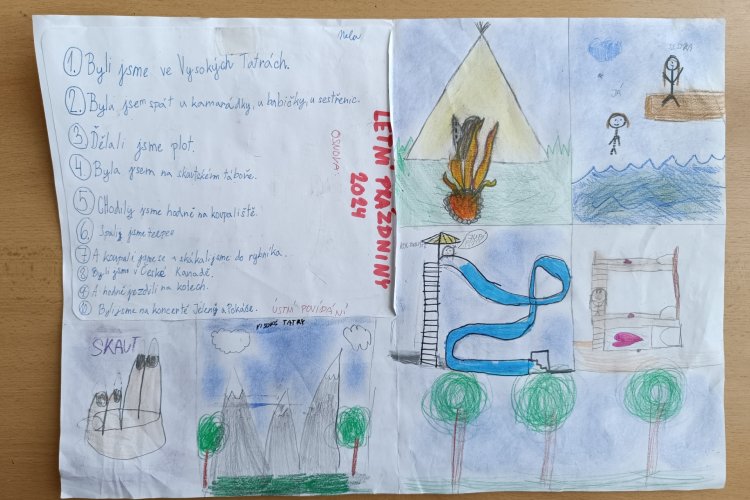 Nela
1. Byli jsme ve Vysokých Tatrách.
2. Byla jsem spát u kamarádky, u babičky, u sestřenic.
3 Dělali jsme plot.
4 Byla jsem na skautském táboře.
5 CHodily jsme hodně na koupaliště.
6 Spaly jsme teepee
7 A koupali jsme se a skákali jsme do rybníka.
8 Byli jsme v České Kanadě.
9 A hodně jezdili na kolech.
10 Byli jsme na koncertě Jelený a Pokáše.
ÚSTNÍ POVÍDÁNÍ
OSNOVA
LETNÍ PRÁZDNINY
2024
JÁ
SKAUT
VISOKE TATRY